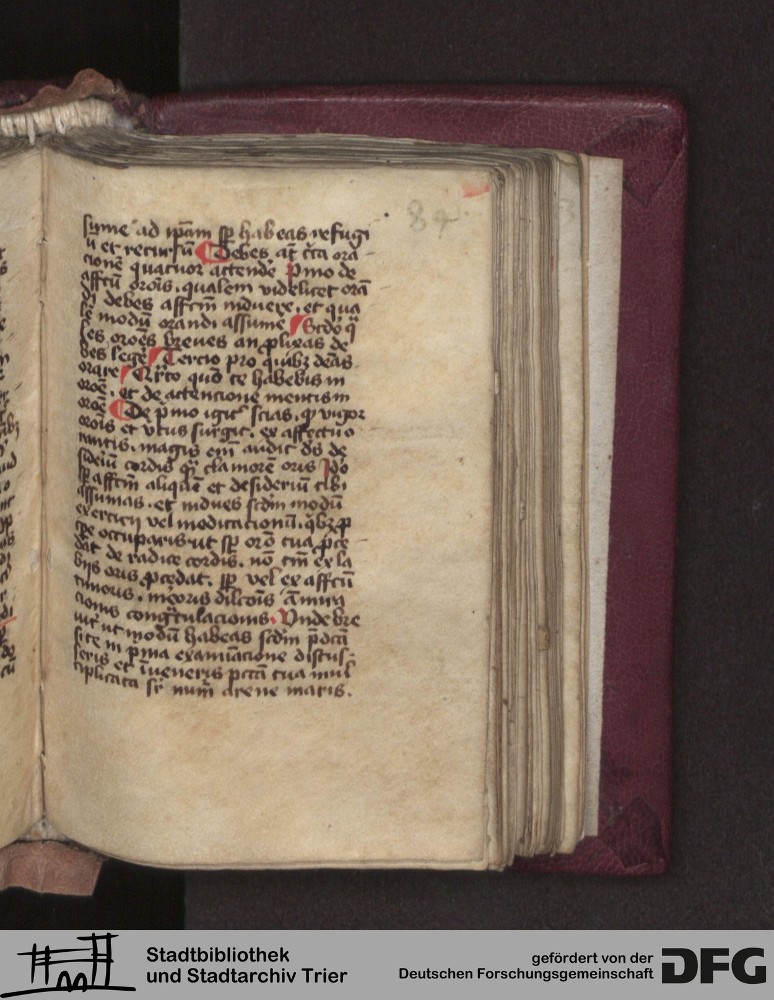 84
sume ad ip̄am sp̄ habeas refugi
ū et recursū Debes at̄ c̄ca ora
cionē quatuor attendē p̄mo de
affc̄tu or̄ois. qualem videlicet orā
debes affc̄m induere. et qua
lē modū orandi assume Scd̄o
oroēs breues an ꝓlixas de
bes legē Tercio pro quibꝫ debeas
orare Qr̄to quō te habebis in
oroē. et de attencione mentis in
oroē De p̄mo igit᷑ scias. ꝙ vigor
or̄ois et v̄tus surgit. ex affectu o
rantis. magis em̄ audit d̄s de
sideriū cordis q̄ꝫ clamorē oris
sp̄ affc̄m aliquē et desideriū tibi
assumas. et indues scd̄m modū
exercicij vel meditacionū. q̄bꝫ ꝑ
occuparis ut sp̄ oro tua ꝓce
dat de radice cordis. nō tm̄ ex la
biis oris ꝓcedat. sp̄ vel ex affc̄u
timoris. meroris dilc̄ois āmira
cionis congr̄tulacionis. Vnde bre
uit᷑ ut modū habeas scd̄m p̄dc̄ā
in p̄ma examīacione discus
seris et īueneris pcc̄ā tua mul
tiplicata sr̄ num̄ arene maris.
Stadtbibliothek
und Stadtarchiv Trier
gefördert von der
Deutschen Forschungsgemeinschaft
DFG